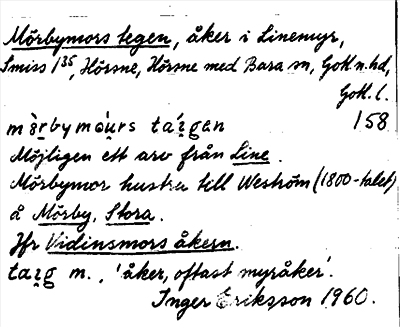 Mörbymors tegen, åker i Linemyr,
Smiss 1³⁵, Hörsne, Hörsne med Bara sn, Gotl. n. hd,
Gotl. l.
158
mö̀rbymoụrs táịgen
Möjligen ett arv från Line.
Mörbymor hustru till Weström (1800-talet)
å Mörby, Stora.
Jfr Vidinsmors åkern.
taịg m., 'åker, oftast myråker'.
Inger Eriksson 1960.